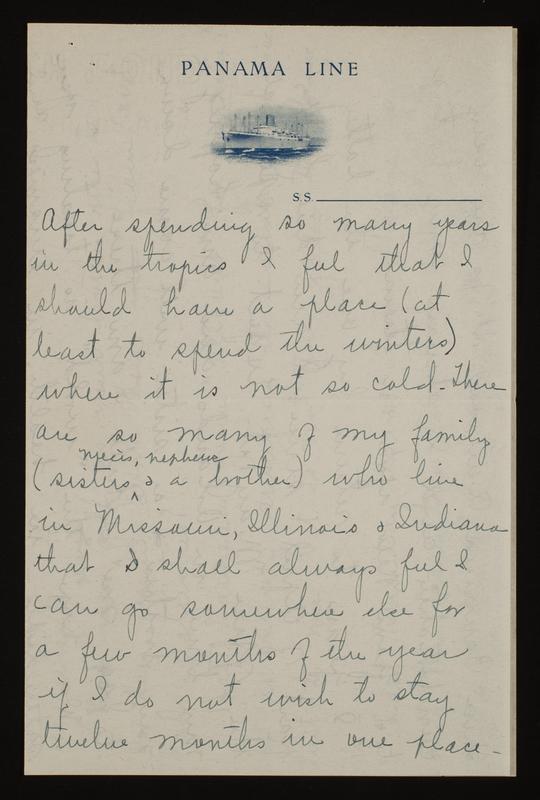 PANAMA LINE
S.S.
After spending so many years
in the tropics I feel that I
should have a place (at
least to spend the winters)
where it is not so cold. There
are so many of my family
nieces, nephews
(sisters & a brother) who live
in Missouri, Illinois & Indiana
that I shall always feel I
can go somewhere else for
a few months of the year
if I do not wish to stay
twelve months in one place -